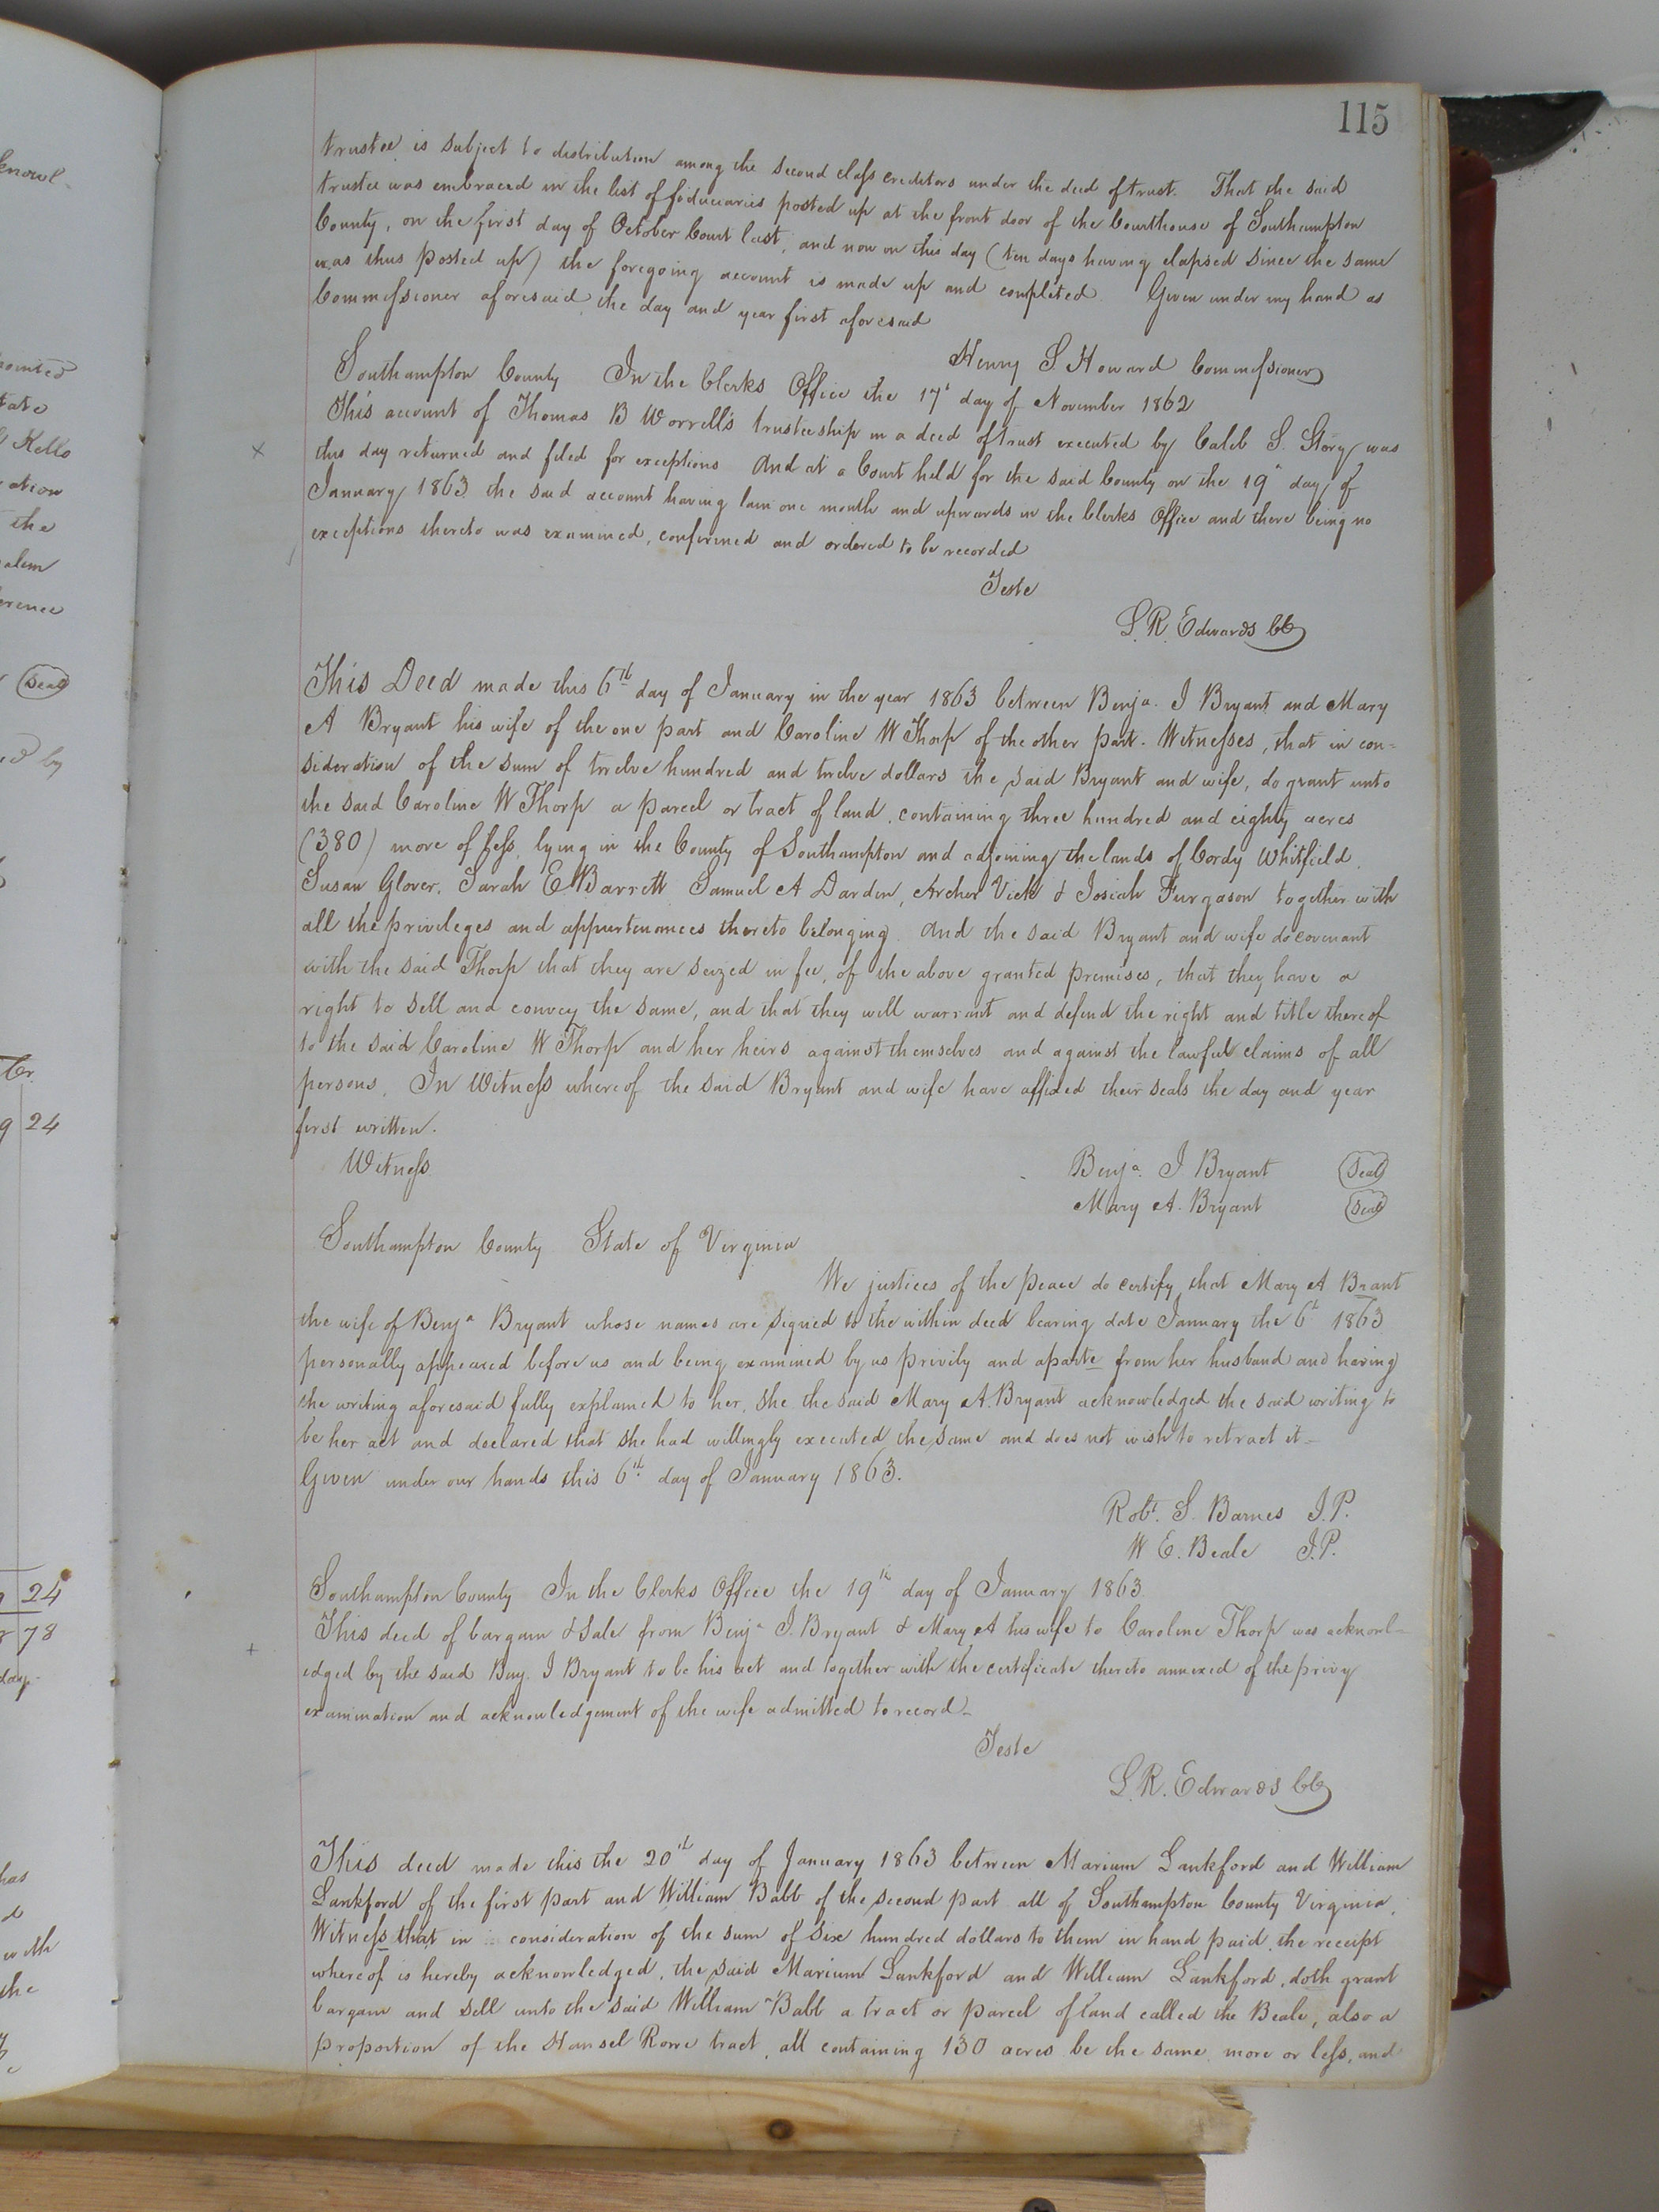 115
trustee is subject to distribution among the second class creditors under the deed of trust. That the said
trustee was embraced in the list of fiduciaries posted up at the front door of the Courthouse of Southampton
County, on the first day of October Court last, and now on this day (ten days having elapsed since the same
was thus posted up) the foregoing account is made up and completed. Given under my hand as
Commissioner aforesaid the day and year first aforesaid
Henry S. Howard Commissioner
Southampton County In the Clerks Office the 17th day of November 1862
This account of Thomas B Worrell's trusteeship in a deed of trust executed by Caleb S. Story was
this day returned and filed for exceptions And at a Court held for the said County on the 19th day of
January 1863 the said account having lain one month and upwards in the Clerks Office and there being no
exceptions thereto was examined, confirmed and ordered to be recorded
Teste
L. R. Edwards CC
This Deed made this 6th day of January in the year 1863 between Benja. J Bryant and Mary
A Bryant his wife of the one part and Caroline W Thorp of the other part. Witnesses, that in con-
sideration of the sum of twelve hundred and twelve dollars the said Bryant and wife, do grant unto
the said Caroline W Thorp a parcel or tract of land, containing three hundred and eighty acres
(380) more of less, lying in the County of Southampton and adjoining the lands of Cordy Whitfield.
Susan Glover, Sarah E Barrett Samuel A Darden, Archer Vick & Josiah Furgason together with
all the privileges and appurtenances thereto belonging. And the said Bryant and wife do covenant
with the said Thorp that they are seized in fee, of the above granted premises, that they have a
right to sell and convey the same, and that they will warrant and defend the right and title thereof
to the said Caroline W Thorp and her heirs against themselves and against the lawful claims of all
persons. In Witness whereof the said Bryant and wife have affixed their seals the day and year
first written.
Witness
Benja. J Bryant (Seal)
Mary A. Bryant (Seal)
Southampton County State of Virginia
We justices of the peace do certify that Mary A Brant
the wife of Benja Bryant whose names are signed to the within deed bearing date January the 6th 1863
personally appeared before us and being examined by us privily and aparte from her husband and having
the writing aforesaid fully explained to her, she the said Mary A. Bryant acknowledged the said writing to
be her act and declared that she had willingly executed the same and does not wish to retract it -
Given under our hands this 6th day of January 1863.
Robt. S. Barnes J.P.
W E. Beale J.P.
Southampton County In the Clerks Office the 19th day of January 1863
This deed of bargain & Sale from Benja J. Bryant & Mary A his wife to Caroline Thorp was acknowl-
edged by the said Benj. J Bryant to be his act and together with the certificate thereto annexed of the privy
examination and acknowledgement of the wife admitted to record -
Teste
L. R. Edwards CC
This deed made this the 20th day of January 1863 between Marium Lankford and William
Lankford of the first part and William Babb of the second part all of Southampton County Virginia.
Witness that in consideration of the sum of six hundred dollars to them in hand paid, the receipt
whereof is hereby acknowledged, the said Marium Lankford and William Lankford, doth grant
bargain and sell unto the said William Babb a tract or parcel of land called the Beale, also a
proportion of the Hansel Rowe tract, all containing 130 acres be the same more or less, and